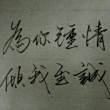 為你鍾情
傾我至誠